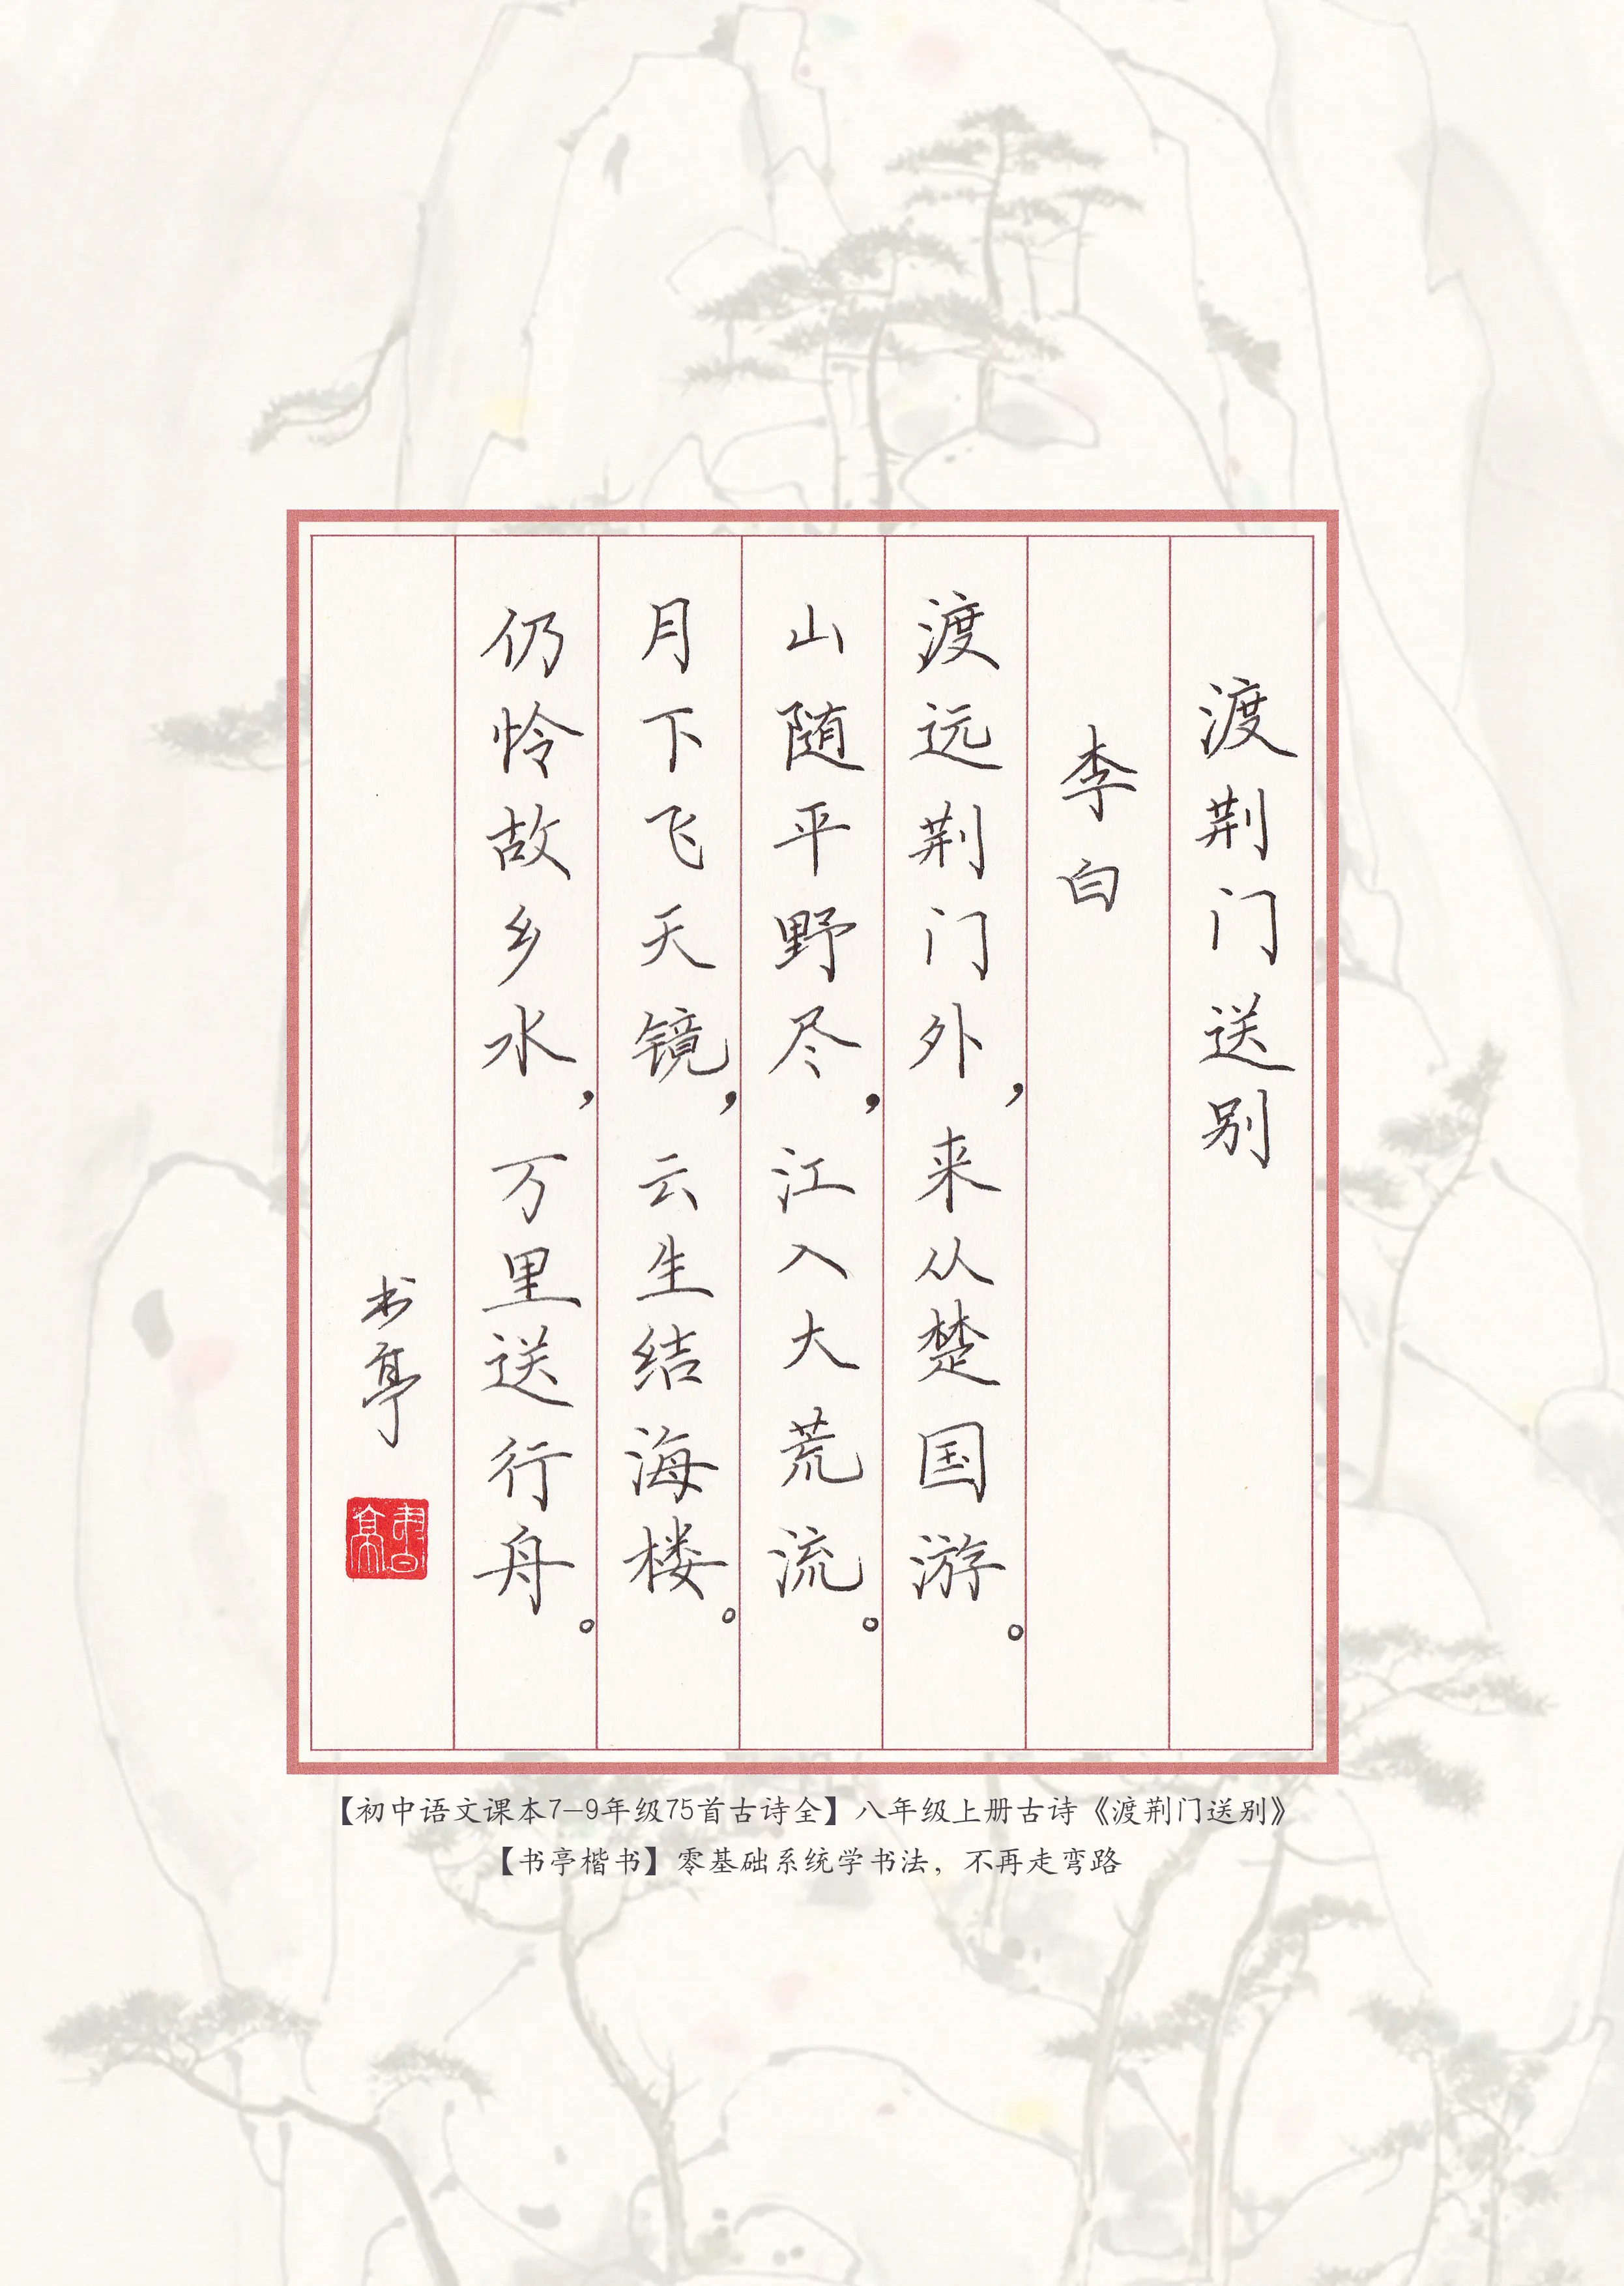 渡荆门送别
李白
渡远荆门外，来从楚国游。
山随平野尽，江入大荒流。
月下飞天镜，云生结海楼。
仍怜故乡水，万里送行舟。
书亭
書亭
【初中语文课本7-9年级75首古诗全】八年级上册古诗《渡荆门送别》
【书亭楷书】零基础系统学书法，不再走弯路